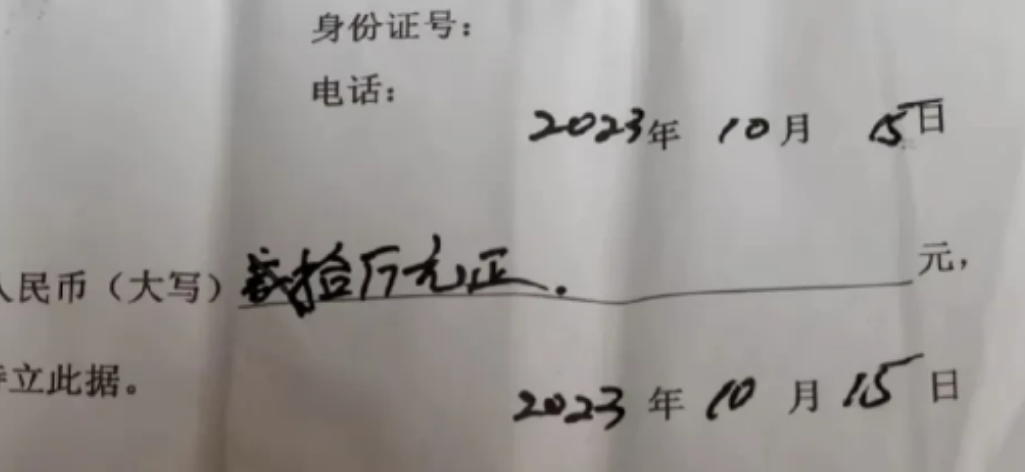 身份证号：
电话：
2023年 10月 15日
人民币（大写）贰拾万元正. 元，
立此据。
2023年 10月 15日